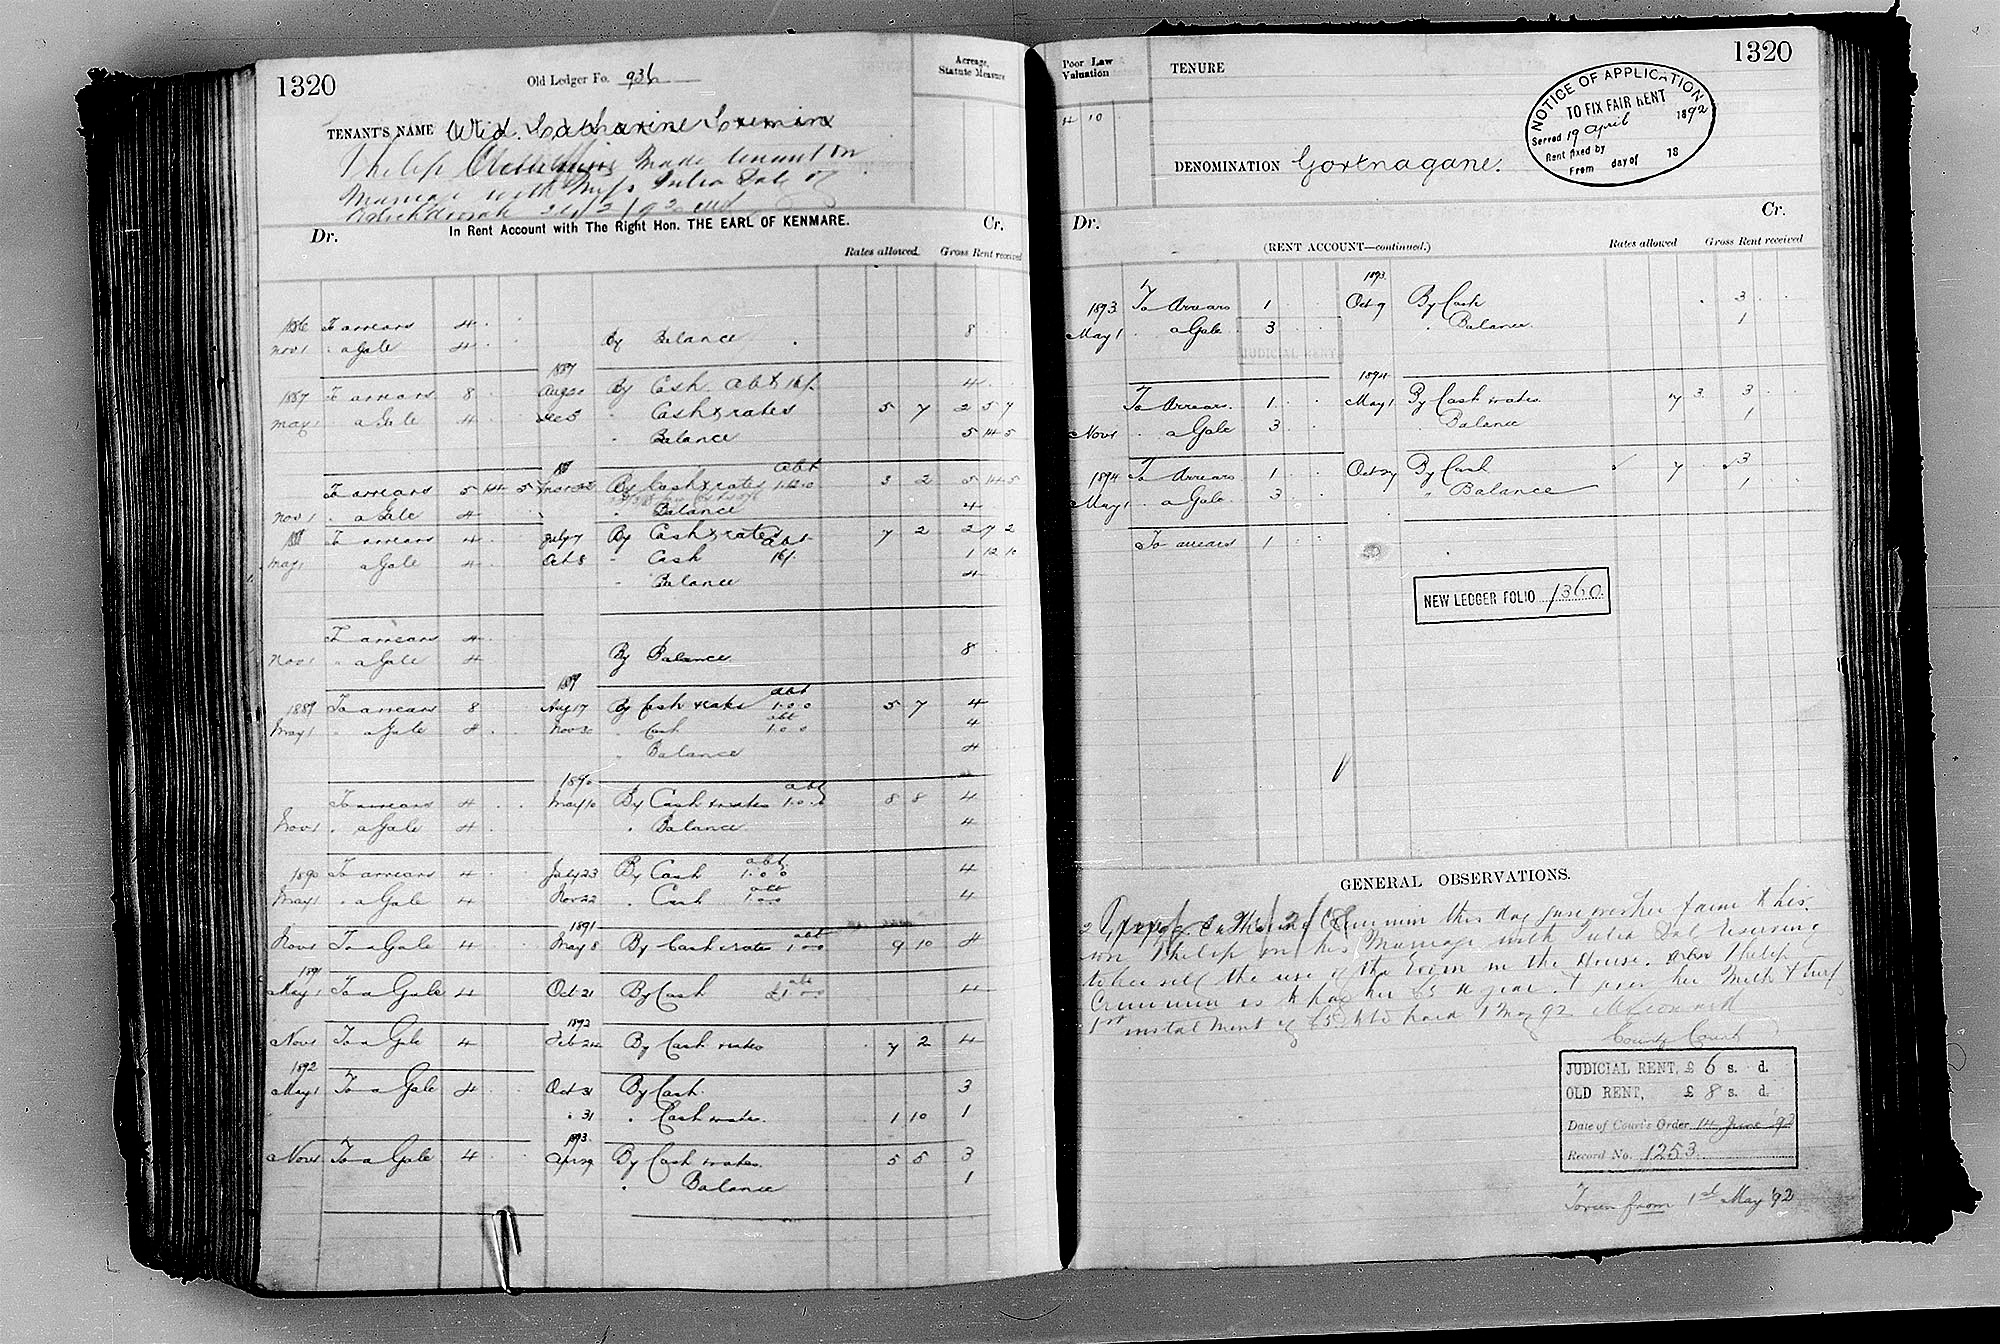 1320
Old Ledger Fo. 936
Acreage, Statute Measure
TENANT'S NAME Wid. Catharine Cremin
Philip Cremin Made tenant on
Marriage with Miss Julia Daly of
In Rent Account with The Right Hon. THE EARL OF KENMARE.
Dr. Cr.
Rates allowed Gross Rent received
1886 To arrears 4
Nov 1 " a Gale 4 By Balance 8
1887
1887 To arrears 8 Aug 20 By Cash abt 16/. 4
May 1 a Gale 4 Dec 5 " Cash & rates 5 7 2 5 7
" Balance 5 14 5
To arrears 5 14 5 By Cash & rates abt 1.12.0 3 2 5 14 5
Nov 1 " a Gale 4 " Balance 4
1888 To arrears 4 July 7 By Cash & rates 7 2 2 7 2
May 1 a Gale 4 Oct 8 " Cash abt 16/. 1 12 10
" Balance 4
To arrears 4
Nov 1 " a Gale 4 By Balance 8
1889
1889 To arrears 8 Aug 17 By Cash & rates abt 1.0.0 5 7 4
May 1 " a Gale 4 Nov 30 " Cash abt 1.0.0 4
" Balance 4
1890
To arrears 4 May 10 By Cash & rates abt 1.0.0 8 8 4
Nov 1 " a Gale 4 " Balance 4
1890 To arrears 4 July 23 By Cash abt 1.0.0 4
May 1 " a Gale 4 Nov 22 " Cash abt 1.0.0 4
1891
Nov 1 To a Gale 4 May 8 By Cash & rates abt 1.0.0 9 10 4
1891
May 1 To a Gale 4 Oct 21 By Cash abt £1.0.0 4
1892
Nov 1 To a Gale 4 Feb 24 By Cash & rates 7 2 4
1892
May 1 To a Gale 4 Oct 31 By Cash 3
" 31 " Cash & rates 1 10 1
1893
Nov 1 To a Gale 4 Apr 29 By Cash & rates 5 5 3
" Balance 1
1320
Poor Law Valuation
4 10
TENURE
NOTICE OF APPLICATION
TO FIX FAIR RENT
Served 19 April 1892
Rent fixed by
From day of 18
DENOMINATION Gortnagane.
Dr. Cr.
(RENT ACCOUNT—continued.)
Rates allowed Gross Rent received
1893
1893 To Arrears 1 Oct 9 By Cash 3
May 1 " a Gale 3 " Balance 1
JUDICIAL RENT
1894
To Arrears 1 May 1 By Cash & rates 7 3 3
Nov 1 " a Gale 3 " Balance 1
1894 To Arrears 1 Oct 27 By Cash 7 3
May 1 " a Gale 3 " Balance 1
To arrears 1
NEW LEDGER FOLIO 1360
GENERAL OBSERVATIONS.
Catharine Cremin this day gives over her farm to his
son Philip on his Marriage with Julia Daly reserving
to herself the use of the room in the House. Philip
Cremin is to pay her £5 a year & give her Milk & turf
1st instalment of £5 to be paid 1 May 92
County Court
JUDICIAL RENT, £ 6 s. d.
OLD RENT, £ 8 s. d.
Date of Court's Order 14 June '93
Record No. 1253
from 1st May '92